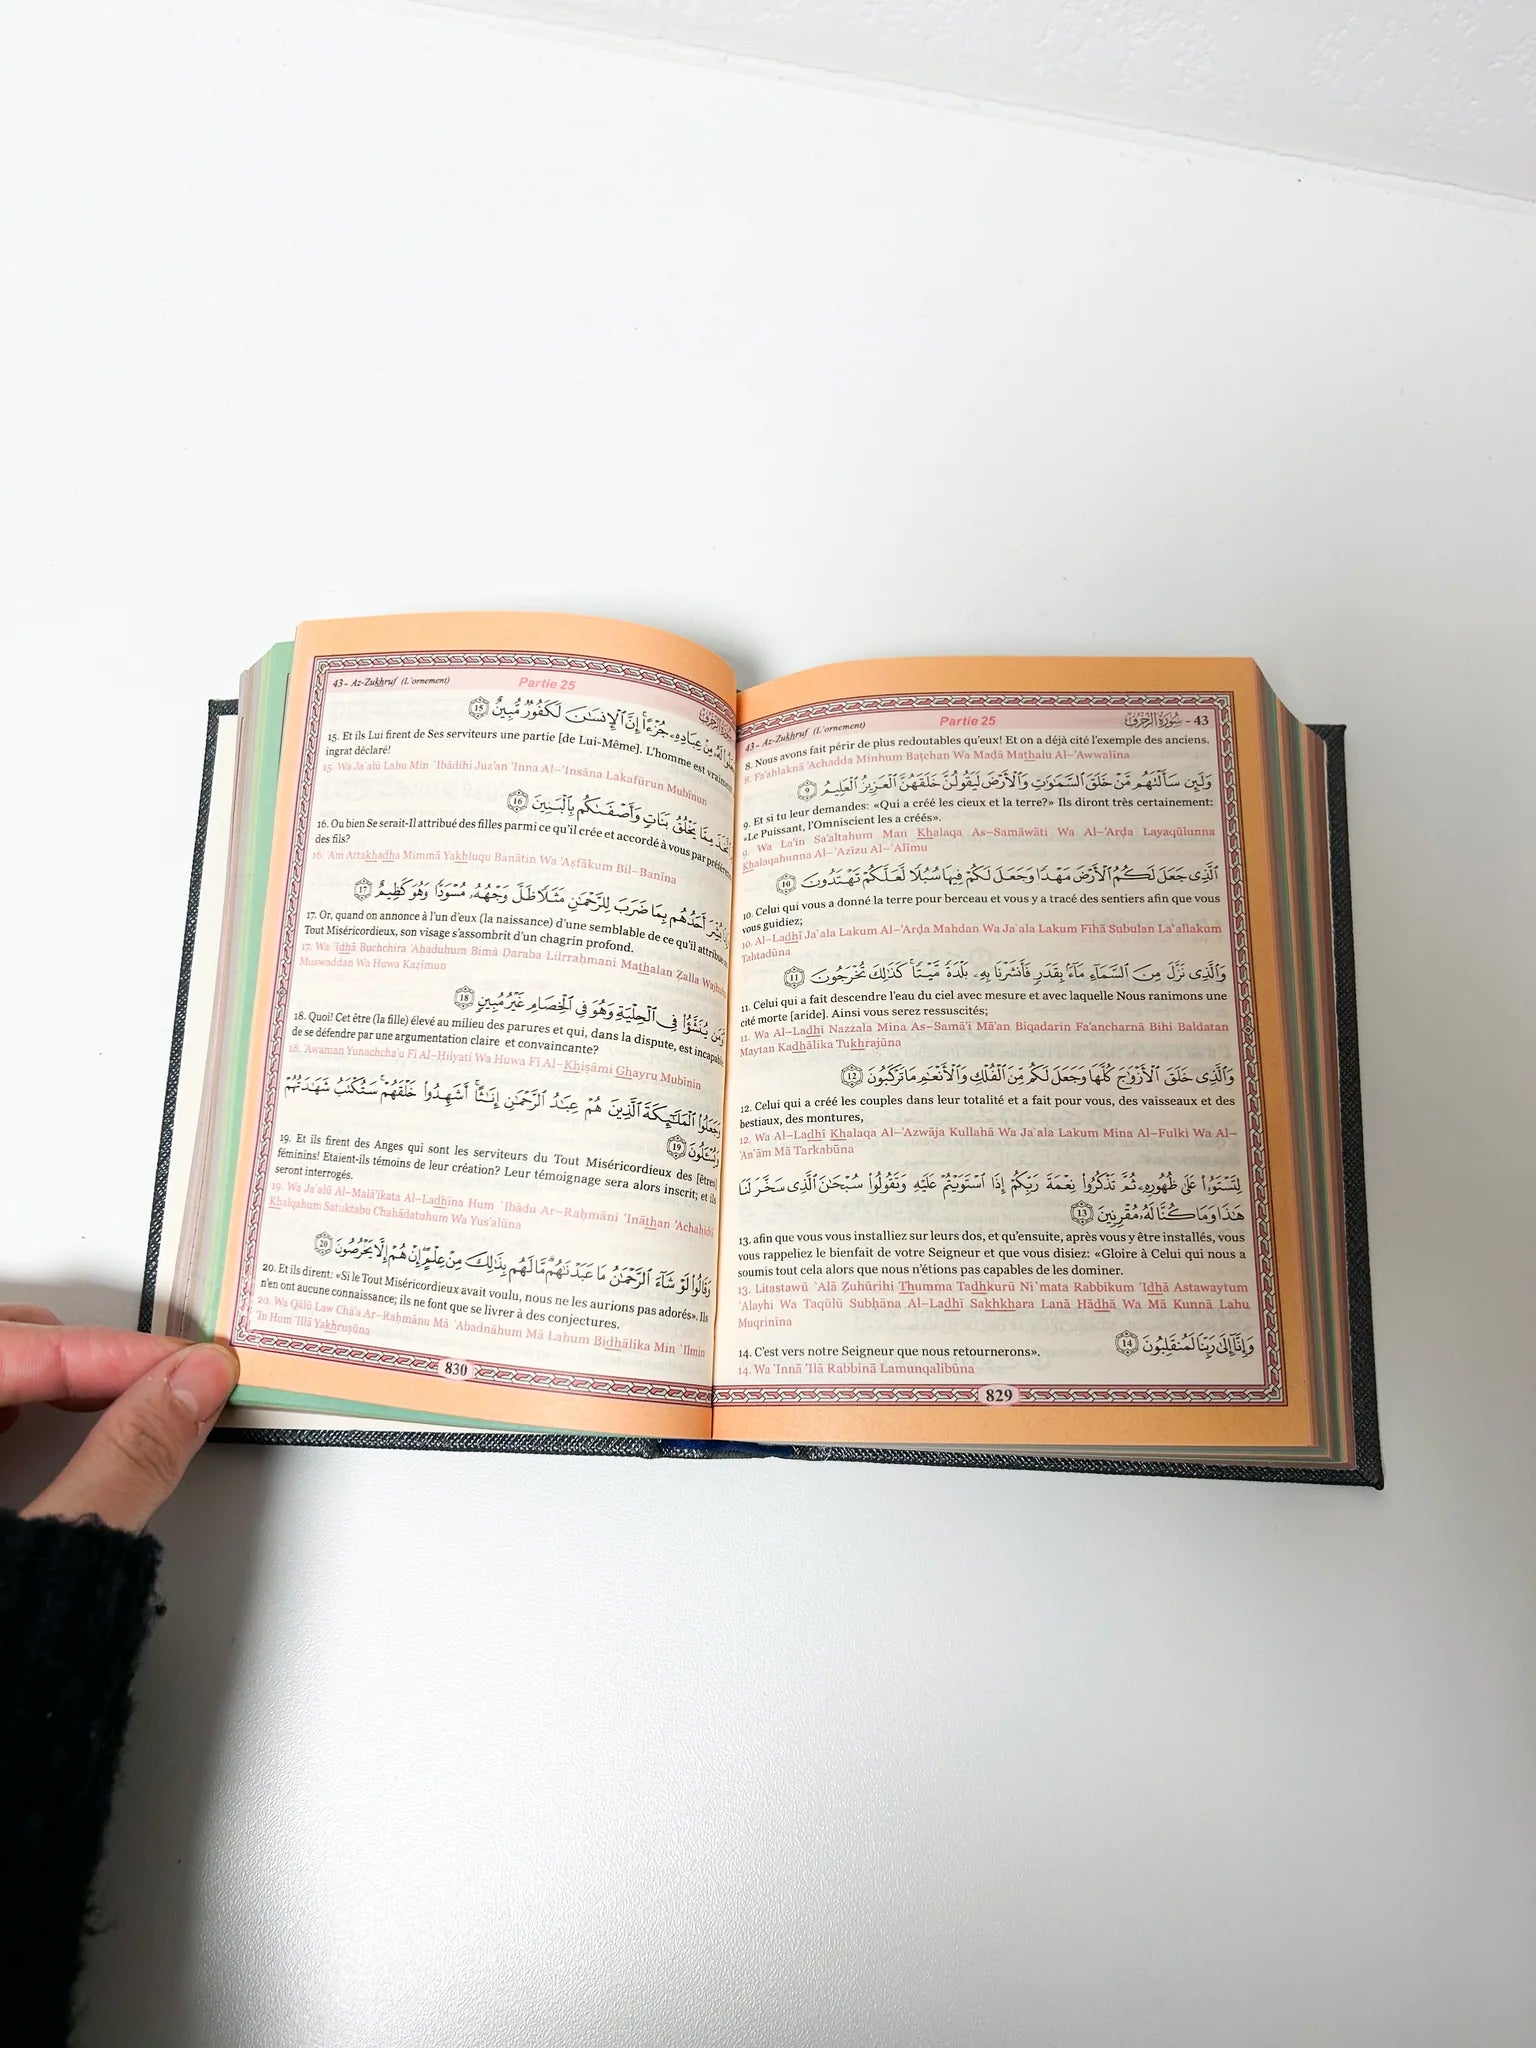 43 - Az-Zukhruf (L'ornement) Partie 25 سُورَةُ الزُّخْرُفِ - 43
8. Nous avons fait périr de plus redoutables qu'eux! Et on a déjà cité l'exemple des anciens.
8. Fa'ahlaknā 'Achadda Minhum Baţchan Wa Mađá Mathalu Al-'Awwalīna
وَلَئِن سَأَلْتَهُم مَّنْ خَلَقَ ٱلسَّمَٰوَٰتِ وَٱلْأَرْضَ لَيَقُولُنَّ خَلَقَهُنَّ ٱلْعَزِيزُ ٱلْعَلِيمُ ۝٩
9. Et si tu leur demandes: «Qui a créé les cieux et la terre?» Ils diront très certainement:
«Le Puissant, l'Omniscient les a créés».
9. Wa La'in Sa'altahum Man Khalaqa As-Samāwāti Wa Al-'Arđa Layaqūlunna
Khalaqahunna Al-`Azīzu Al-`Alīmu
ٱلَّذِى جَعَلَ لَكُمُ ٱلْأَرْضَ مَهْدًا وَجَعَلَ لَكُمْ فِيهَا سُبُلًا لَّعَلَّكُمْ تَهْتَدُونَ ۝١٠
10. Celui qui vous a donné la terre pour berceau et vous y a tracé des sentiers afin que vous
vous guidiez;
10. Al-Ladhī Ja`ala Lakum Al-'Arđa Mahdan Wa Ja`ala Lakum Fīhā Subulan La`allakum
Tahtadūna
وَٱلَّذِى نَزَّلَ مِنَ ٱلسَّمَآءِ مَآءًۢ بِقَدَرٍ فَأَنشَرْنَا بِهِۦ بَلْدَةً مَّيْتًا ۚ كَذَٰلِكَ تُخْرَجُونَ ۝١١
11. Celui qui a fait descendre l'eau du ciel avec mesure et avec laquelle Nous ranimons une
cité morte [aride]. Ainsi vous serez ressuscités;
11. Wa Al-Ladhī Nazzala Mina As-Samā'i Mā'an Biqadarin Fa'ancharnā Bihi Baldatan
Maytan Kadhālika Tukhrajūna
وَٱلَّذِى خَلَقَ ٱلْأَزْوَٰجَ كُلَّهَا وَجَعَلَ لَكُم مِّنَ ٱلْفُلْكِ وَٱلْأَنْعَٰمِ مَا تَرْكَبُونَ ۝١٢
12. Celui qui a créé les couples dans leur totalité et a fait pour vous, des vaisseaux et des
bestiaux, des montures,
12. Wa Al-Ladhī Khalaqa Al-'Azwāja Kullahā Wa Ja`ala Lakum Mina Al-Fulki Wa Al-
'An`ām Mā Tarkabūna
لِتَسْتَوُۥا۟ عَلَىٰ ظُهُورِهِۦ ثُمَّ تَذْكُرُوا۟ نِعْمَةَ رَبِّكُمْ إِذَا ٱسْتَوَيْتُمْ عَلَيْهِ وَتَقُولُوا۟ سُبْحَٰنَ ٱلَّذِى سَخَّرَ لَنَا
هَٰذَا وَمَا كُنَّا لَهُۥ مُقْرِنِينَ ۝١٣
13. afin que vous vous installiez sur leurs dos, et qu'ensuite, après vous y être installés, vous
vous rappeliez le bienfait de votre Seigneur et que vous disiez: «Gloire à Celui qui nous a
soumis tout cela alors que nous n'étions pas capables de les dominer.
13. Litastawū `Alá Žuhūrihi Thumma Tadhkurū Ni`mata Rabbikum 'Idhā Astawaytum
`Alayhi Wa Taqūlū Subĥāna Al-Ladhī Sakhkhara Lanā Hādhā Wa Mā Kunnā Lahu
Muqrinīna
وَإِنَّآ إِلَىٰ رَبِّنَا لَمُنقَلِبُونَ ۝١٤
14. C'est vers notre Seigneur que nous retournerons».
14. Wa 'Innā 'Ilá Rabbinā Lamunqalibūna
829
43 - Az-Zukhruf (L'ornement) Partie 25
لَهُۥ مِنْ عِبَادِهِۦ جُزْءًا ۚ إِنَّ ٱلْإِنسَٰنَ لَكَفُورٌ مُّبِينٌ ۝١٥
15. Et ils Lui firent de Ses serviteurs une partie [de Lui-Même]. L'homme est vraiment
ingrat déclaré!
15. Wa Ja`alū Lahu Min `Ibādihi Juz'an 'Inna Al-'Insāna Lakafūrun Mubīnun
مِمَّا يَخْلُقُ بَنَاتٍ وَأَصْفَىٰكُم بِٱلْبَنِينَ ۝١٦
16. Ou bien Se serait-Il attribué des filles parmi ce qu'il crée et accordé à vous par
des fils?
16. 'Am Attakhadha Mimmā Yakhluqu Banātin Wa 'Aşfākum Bil-Banīna
بُشِّرَ أَحَدُهُم بِمَا ضَرَبَ لِلرَّحْمَٰنِ مَثَلًا ظَلَّ وَجْهُهُۥ مُسْوَدًّا وَهُوَ كَظِيمٌ ۝١٧
17. Or, quand on annonce à l'un d'eux (la naissance) d'une semblable de ce qu'il attribue
Tout Miséricordieux, son visage s'assombrit d'un chagrin profond.
17. Wa 'Idhā Buchchira 'Aĥaduhum Bimā Đaraba Lilrraĥmani Mathalan Žalla
Muswaddan Wa Huwa Kažīmun
يُنَشَّؤُا۟ فِى ٱلْحِلْيَةِ وَهُوَ فِى ٱلْخِصَامِ غَيْرُ مُبِينٍ ۝١٨
18. Quoi! Cet être (la fille) élevé au milieu des parures et qui, dans la dispute, est
de se défendre par une argumentation claire et convaincante?
18. 'Awaman Yunachcha'u Fī Al-Ĥilyati Wa Huwa Fī Al-Khişāmi Ghayru Mubīnin
وَجَعَلُوا۟ ٱلْمَلَٰٓئِكَةَ ٱلَّذِينَ هُمْ عِبَٰدُ ٱلرَّحْمَٰنِ إِنَٰثًا ۚ أَشَهِدُوا۟ خَلْقَهُمْ ۚ سَتُكْتَبُ شَهَٰدَتُهُمْ
وَيُسْـَٔلُونَ ۝١٩
19. Et ils firent des Anges qui sont les serviteurs du Tout Miséricordieux des [êtres]
féminins! Etaient-ils témoins de leur création? Leur témoignage sera alors inscrit; et ils
seront interrogés.
19. Wa Ja`alū Al-Malā'ikata Al-Ladhīna Hum `Ibādu Ar-Raĥmāni 'Ināthan 'Achahidū
Khalqahum Satuktabu Chahādatuhum Wa Yus'alūna
وَقَالُوا۟ لَوْ شَآءَ ٱلرَّحْمَٰنُ مَا عَبَدْنَٰهُم ۗ مَّا لَهُم بِذَٰلِكَ مِنْ عِلْمٍ ۖ إِنْ هُمْ إِلَّا يَخْرُصُونَ ۝٢٠
20. Et ils dirent: «Si le Tout Miséricordieux avait voulu, nous ne les aurions pas adorés». Ils
n'en ont aucune connaissance; ils ne font que se livrer à des conjectures.
20. Wa Qālū Law Chā'a Ar-Raĥmānu Mā `Abadnāhum Mā Lahum Bidhālika Min `Ilmin
'In Hum 'Illā Yakhruşūna
830